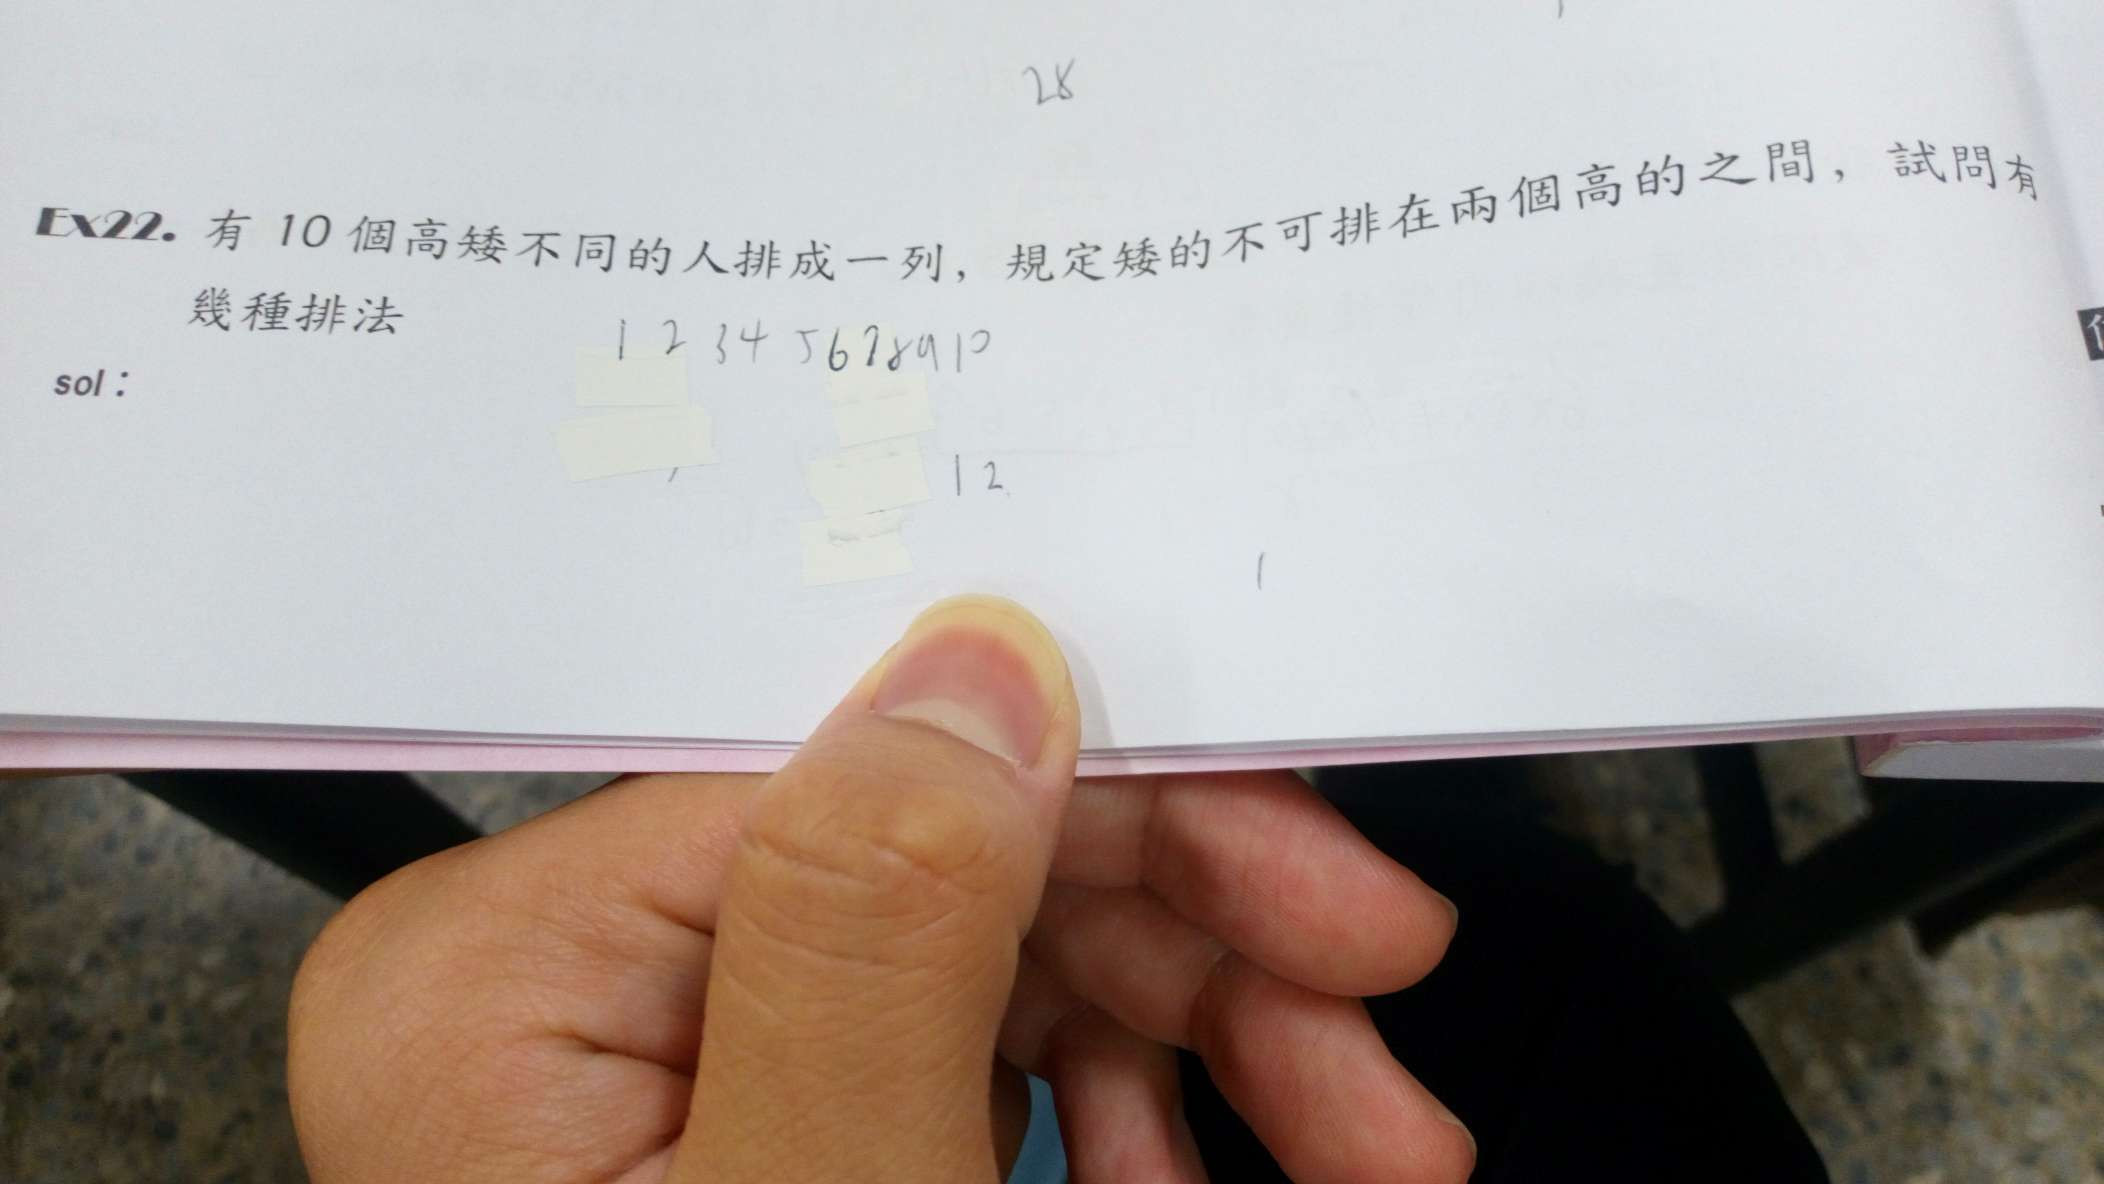 28
Ex22. 有 10 個高矮不同的人排成一列，規定矮的不可排在兩個高的之間，試問有
幾種排法
1 2 3 4 5 6 7 8 9 10
sol：
1 2
1